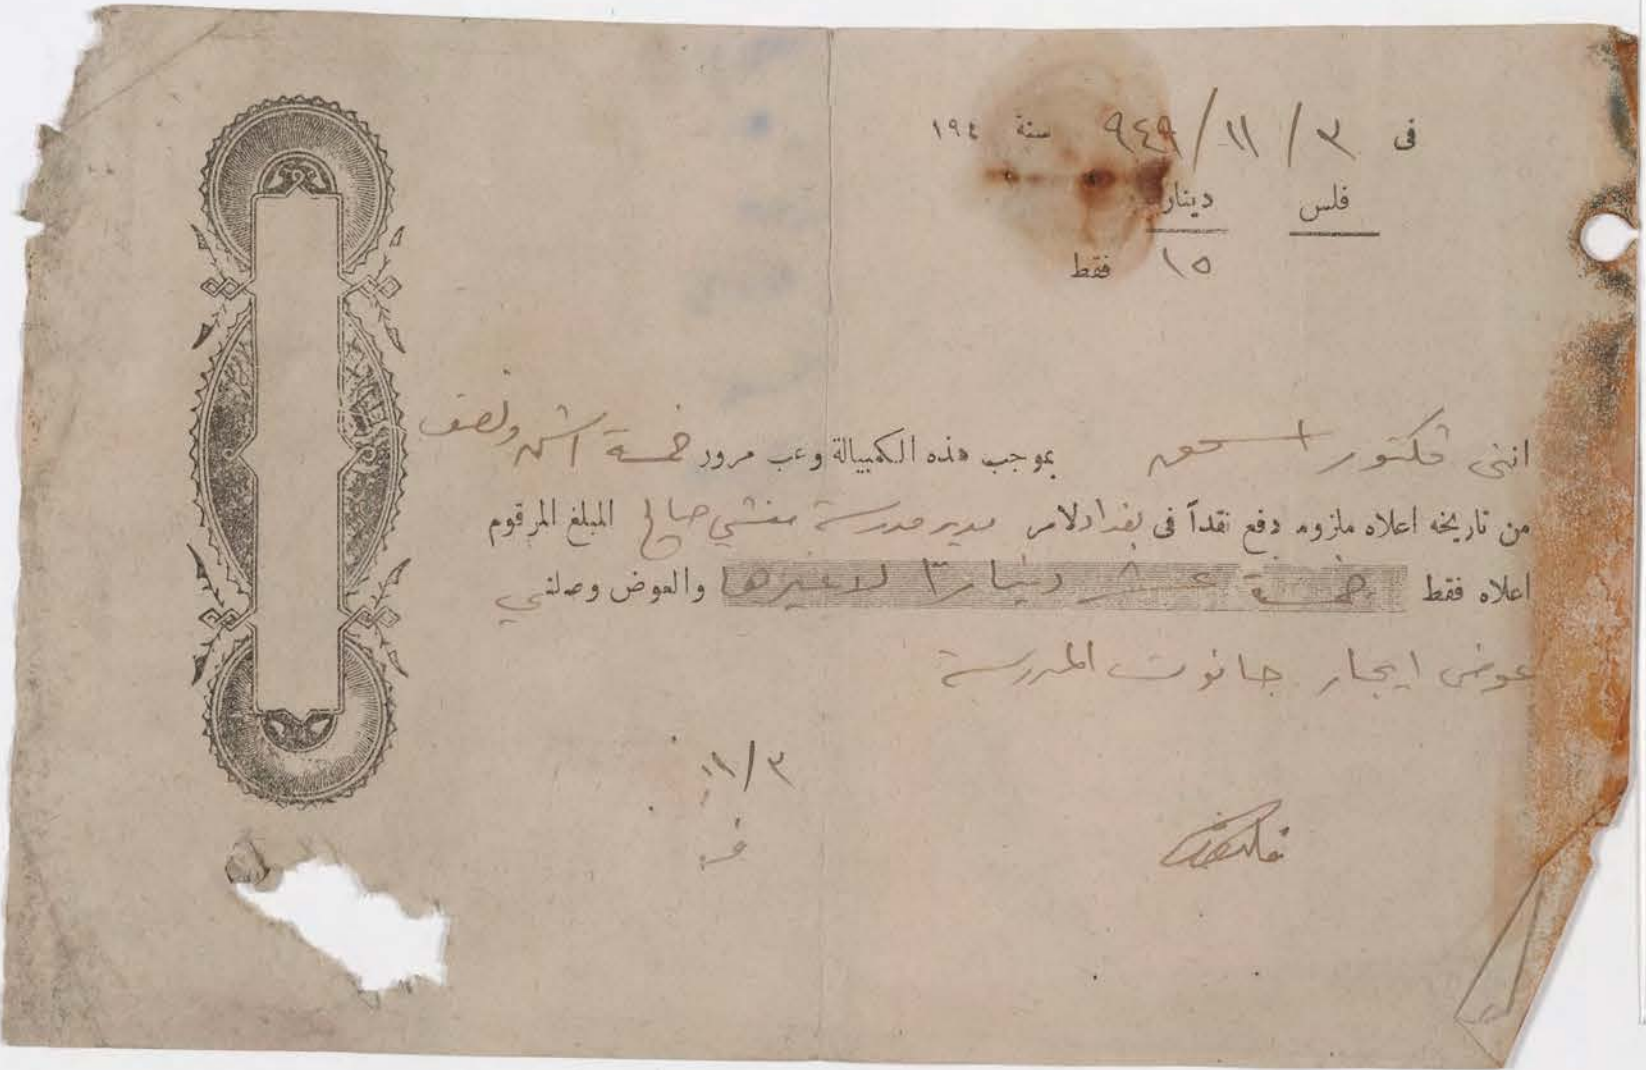 في ٣ / ١١ / ٩٤٩ سنة ١٩٤
فلس دينار
١٥ فقط
انني ڤكتور اسحق بموجب هذه الكمبيالة وعب مرور خمسة اشهر ونصف
من تاريخه اعلاه ملزوم دفع نقداً في بغداد لامر مدير مدرسة منشي صالح المبلغ المرقوم
اعلاه فقط خمسة عشر دينارا لاغيرها والعوض وصلني
عوض ايجار حانوت المدرسة
١١/٣